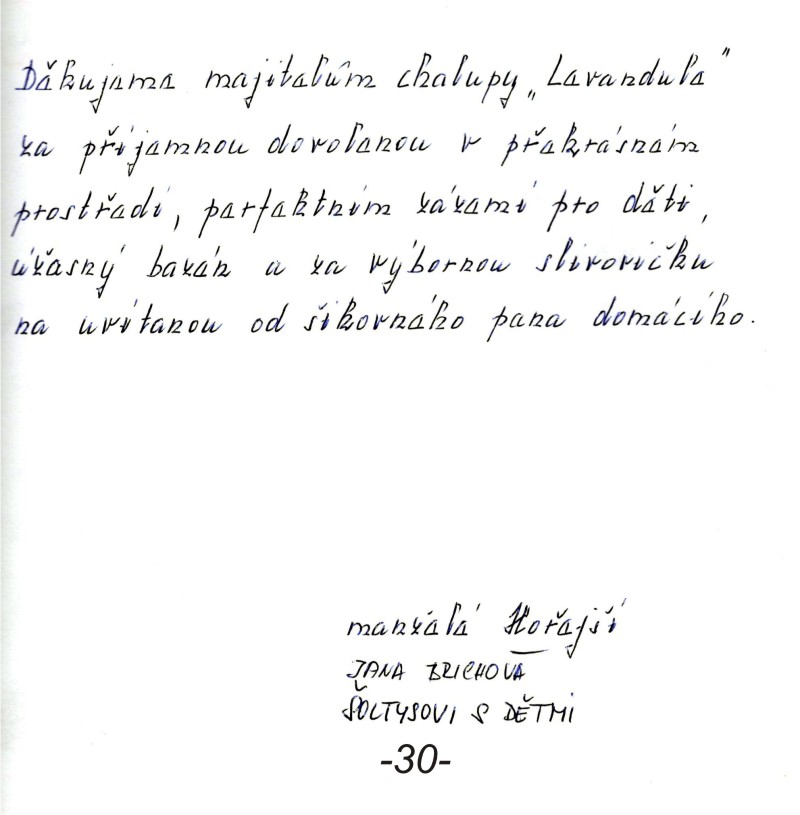 Děkujeme majitelům chalupy „Lavandule"
za příjemnou dovolenou v překrásném
prostředí, perfektním zázemí pro děti,
úžasný bazén a za výbornou slivovičku
na uvítanou od šikovného pana domácího.
manželé Hořejší
JANA BRICHOVA
ŠOLTYSOVI S DĚTMI
-30-